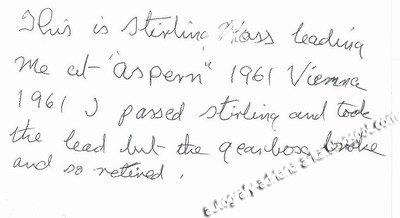 This is Stirling Moss leading
me at "Aspern" 1961 Vienna
1961 I passed stirling and took
the lead but the gearbox broke
and so retired.